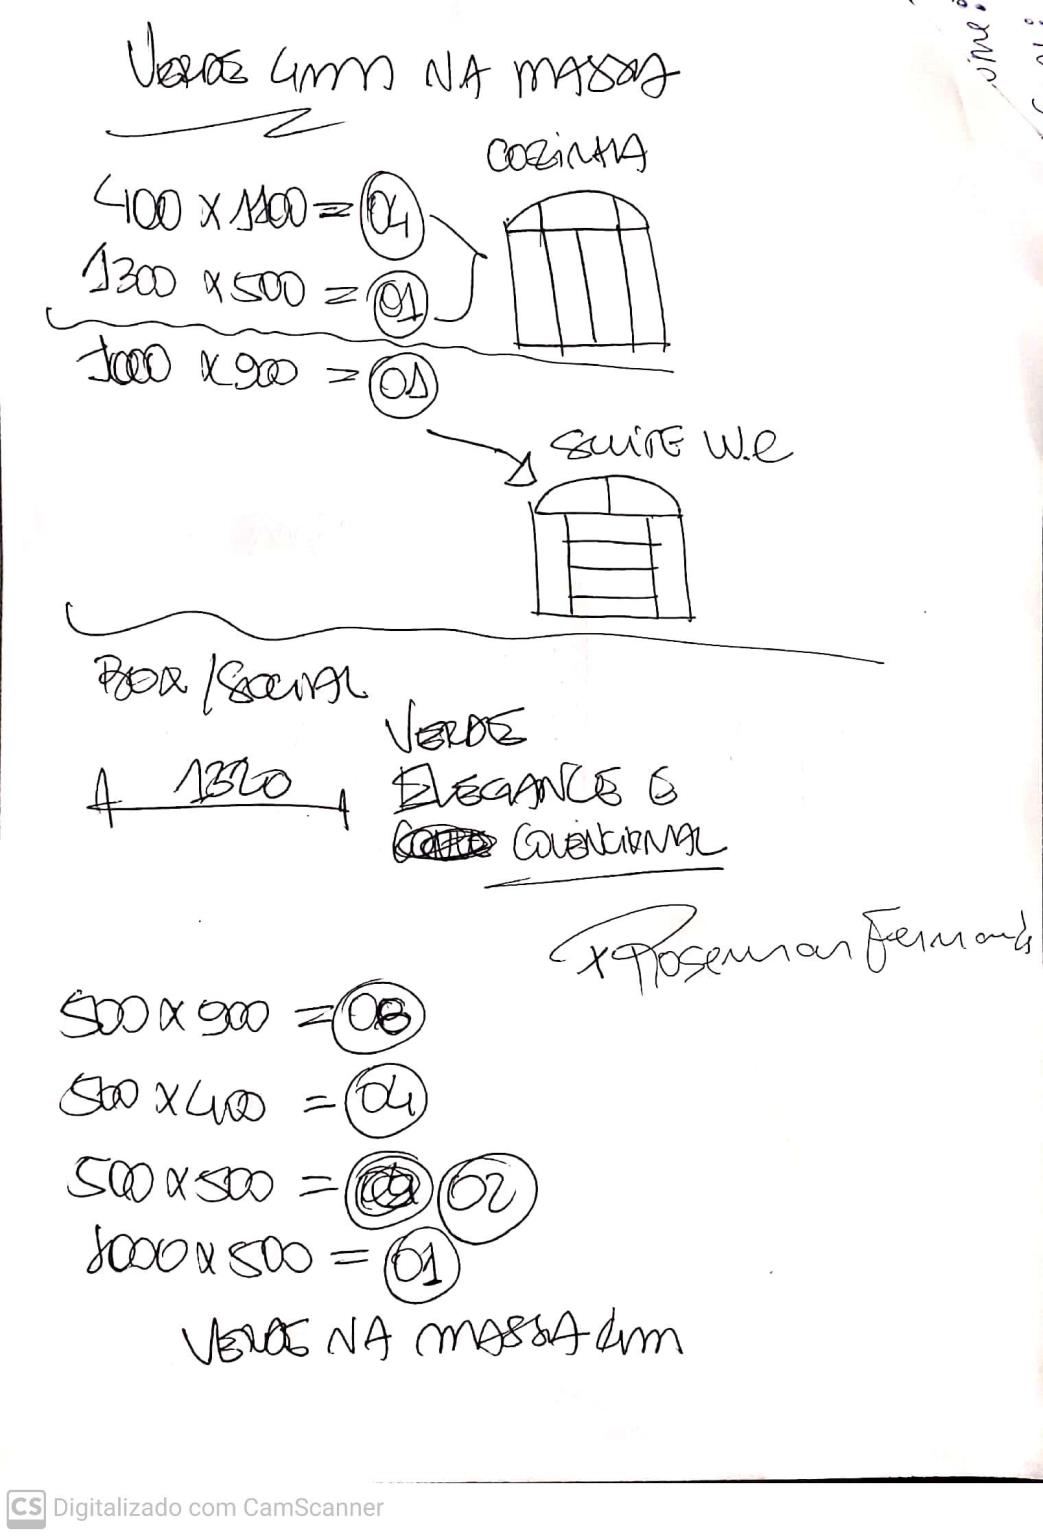 VERDE 4mm NA MASSA
COZINHA
400 X 1100 = 04
1300 X 500 = 01
1000 X 900 = 01
SUITE W.C
BOX / SOCIAL
1320
VERDE
ELEGANCE E
COVENCIONAL
X Rosemar Fernands
500 X 900 = 08
500 X 400 = 04
500 X 500 = 02
1000 X 500 = 01
VERDE NA MASSA 4mm
CS Digitalizado com CamScanner